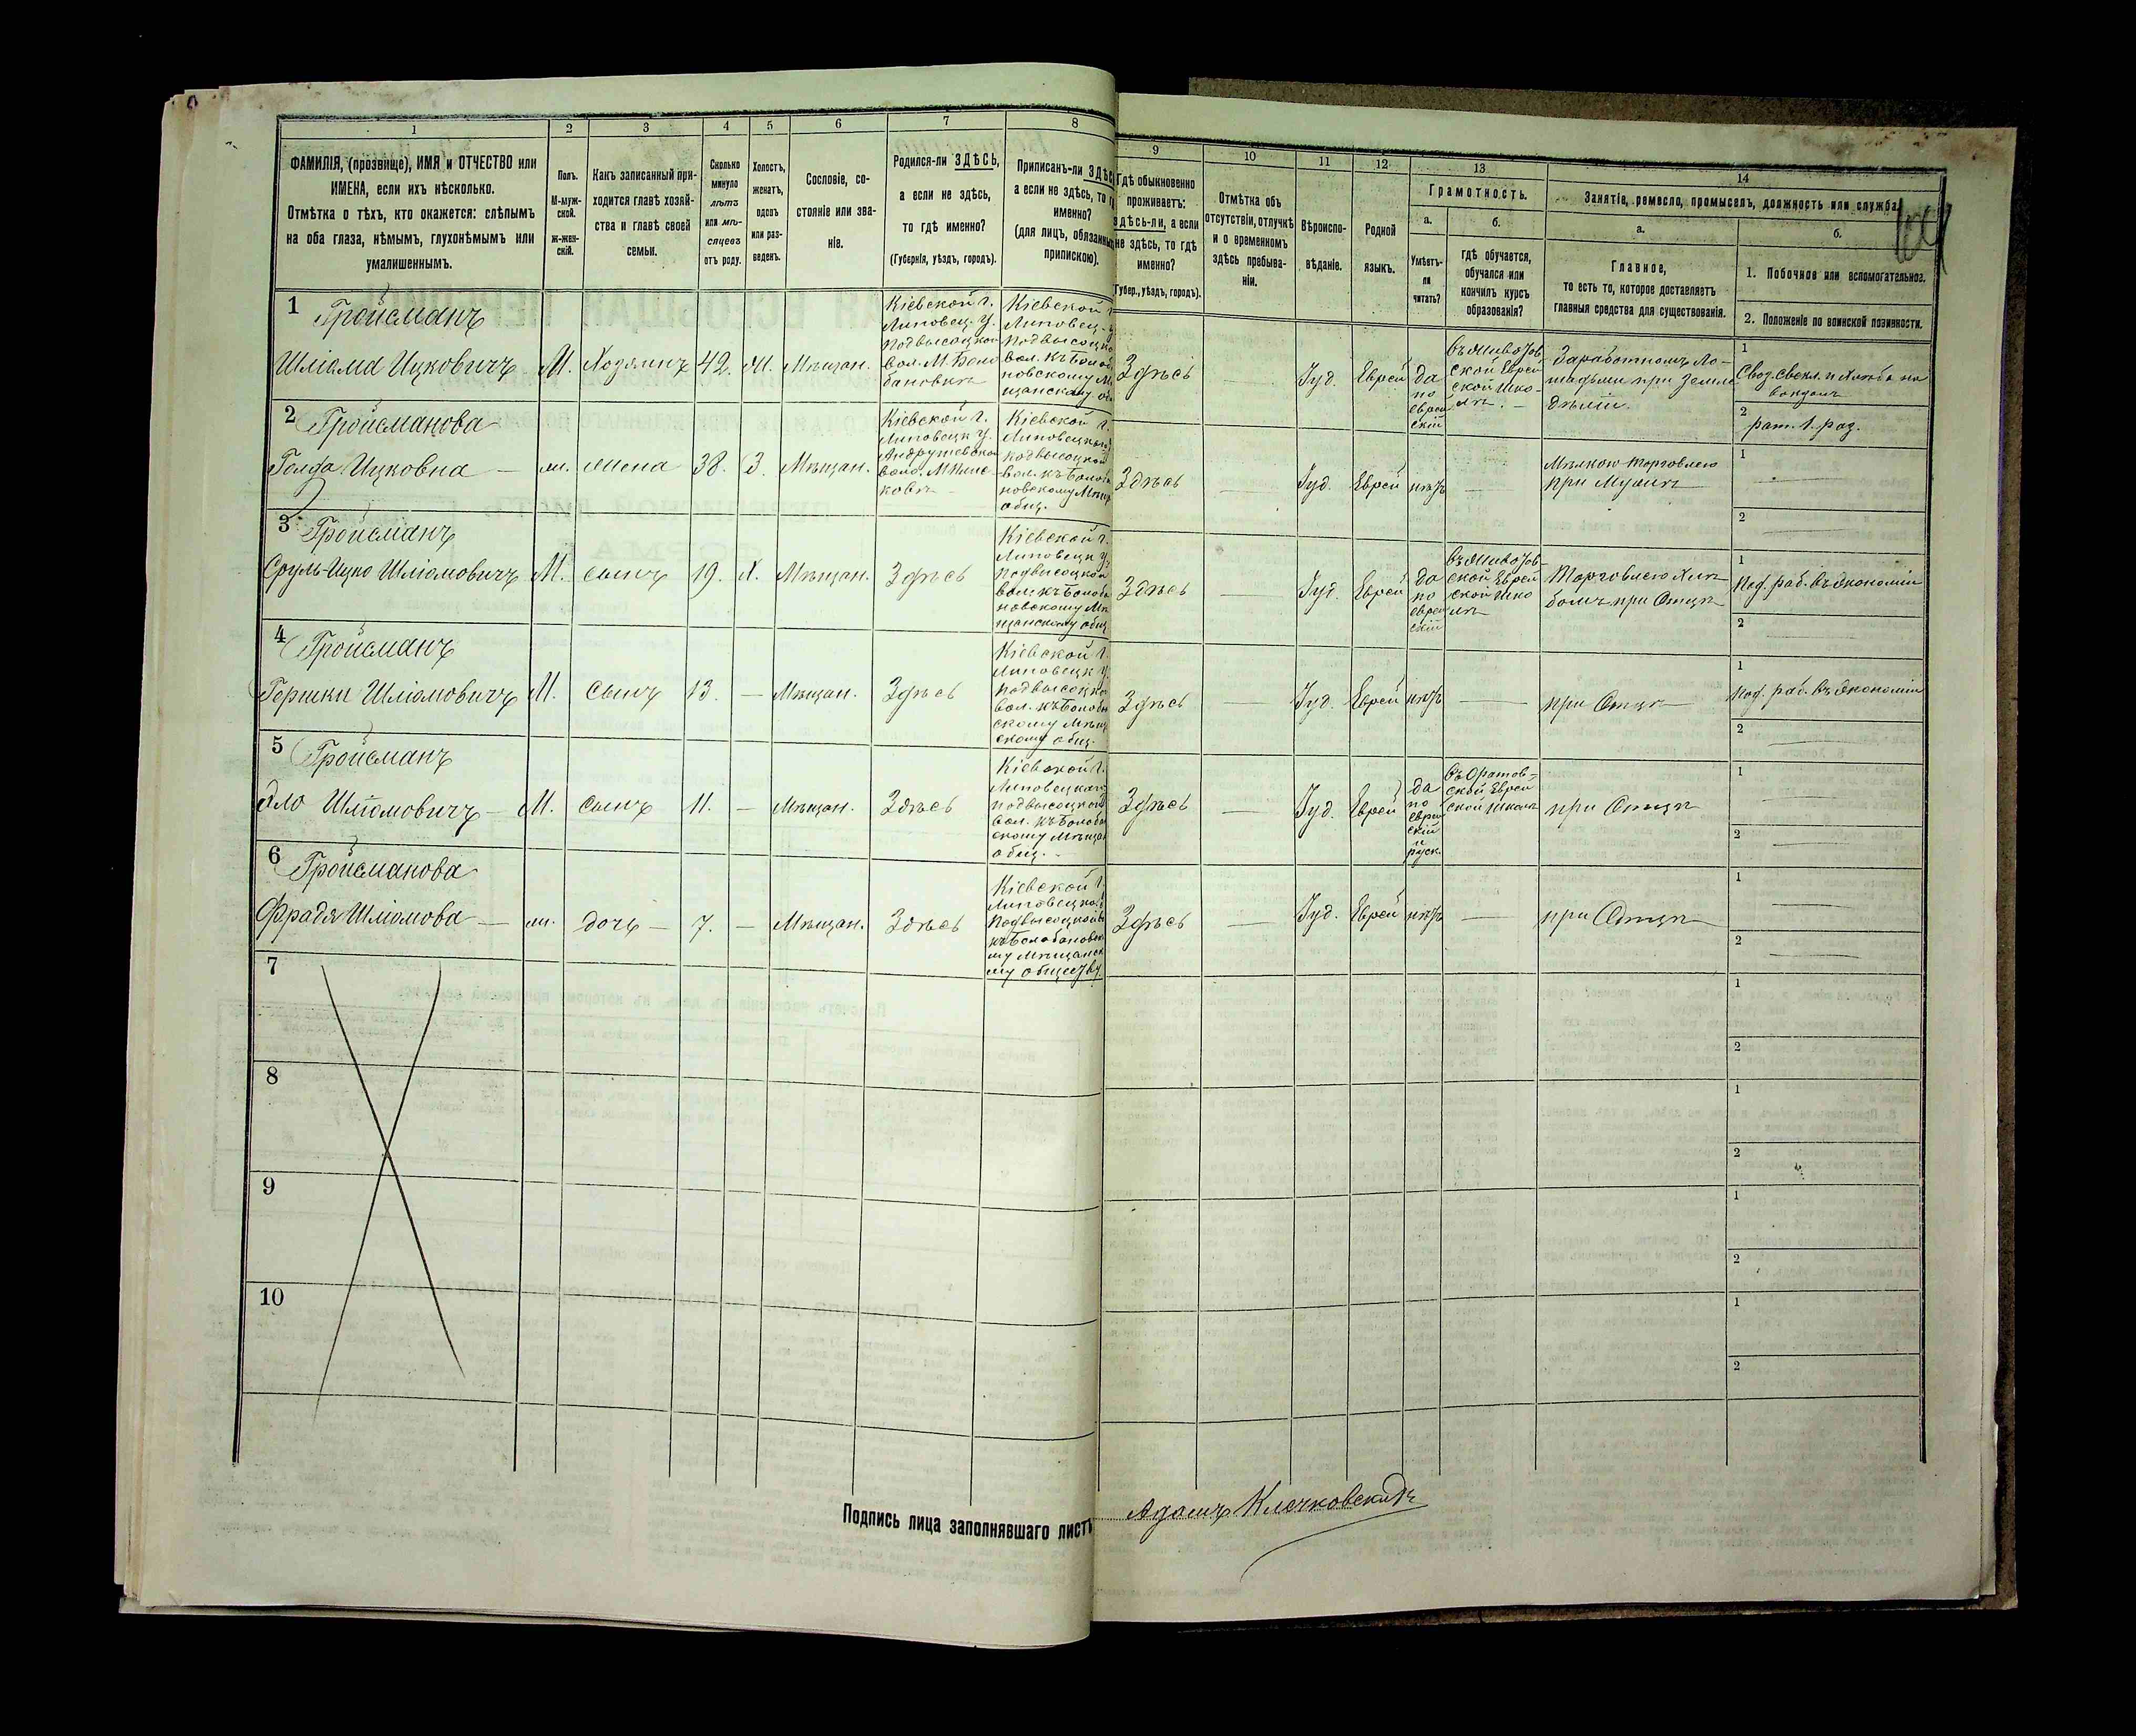 1
2
3
4
5
6
7
8
ФАМИЛІЯ, (прозвище), ИМЯ и ОТЧЕСТВО или
ИМЕНА, если ихъ нѣсколько.
Отмѣтка о тѣхъ, кто окажется: слѣпымъ
на оба глаза, нѣмымъ, глухонѣмымъ или
умалишеннымъ.
Полъ.
М-муж-
ской.
ж-жен-
скій.
Какъ записанный при-
ходится главѣ хозяй-
ства и главѣ своей
семьи.
Сколько
минуло
лѣтъ
или мѣ-
сяцевъ
отъ роду.
Холостъ,
женатъ,
вдовъ
или раз-
веденъ.
Сословіе, со-
стояніе или зва-
ніе.
Родился-ли ЗДѢСЬ,
а если не здѣсь,
то гдѣ именно?
(Губернія, уѣздъ, городъ).
Приписанъ-ли ЗДѢСЬ
а если не здѣсь, то г
именно?
(для лицъ, обязанныхъ
припискою).
9
10
11
12
13
14
Гдѣ обыкновенно
проживаетъ:
здѣсь-ли, а если
не здѣсь, то гдѣ
именно?
(Губер., уѣздъ, городъ).
Отмѣтка объ
отсутствіи, отлучкѣ
и о временномъ
здѣсь пребыва-
ніи.
Вѣроиспо-
вѣданіе.
Родной
языкъ.
Грамотность.
а.
б.
Умѣетъ-
ли
читать?
гдѣ обучается,
обучался или
кончилъ курсъ
образованія?
Занятіе, ремесло, промыселъ, должность или служба.
а.
б.
Главное,
то есть то, которое доставляетъ
главныя средства для существованія.
1. Побочное или вспомогательное.
2. Положеніе по воинской повинности.
1 Гройсманъ
Шліома Ицковичъ М. Хозяинъ 42. Ж. Мѣщан.
Кіевской г.
Липовец. у.
Подвысоцкой
вол. М. Бало
бановкѣ
Кіевской г.
Липовец. у.
Подвысоцко
вол. къ Балаба
новскому Мѣ
щанскому об
Здѣсь — Іуд. Еврей
да
по
еврей
скій
въ Животов-
ской Еврей
ской шко-
лѣ. —
Заработкомъ Ло-
шадьми при Земле
дѣліи.
1
2
рат. 1. раз.
2 Гройсманова
Голда Ицковна — ж. жена 38. З. Мѣщан.
Кіевской г.
Липовецк у.
Кіевской г.
Липовецкаго
подвысоцкой
вол. къ Балаба
новскому Мѣщ
общ.
Здѣсь — Іуд. Еврей нѣтъ —
Мѣлкою торговлею
при Мужѣ
1
2
3 Гройсманъ
Сруль-Ицко Шліомовичъ М. сынъ 19. Х. Мѣщан. Здѣсь
Кіевской г.
Липовецк у.
Подвысоцкой
вол. къ Балаба
новскому Мѣ
щанскому общ
Здѣсь — Іуд. Еврей
да
по
еврей
скій
въ Животов-
ской Еврей
ской шко
лѣ
Торговлею Хлѣ
бомъ при Отцѣ
1
Под. раб. въ экономіи
2
4 Гройсманъ
Гершки Шліомовичъ М. Сынъ 13. — Мѣщан. Здѣсь
Кіевской г.
Липовецк у.
подвысоцко
вол. къ Балабан
скому Мѣщ
скому общ.
Здѣсь — Іуд. Еврей нѣтъ — при Отцѣ
1
Под. раб. въ экономіи
2
5 Гройсманъ
Шліомовичъ — М. Сынъ 11. — Мѣщан. Здѣсь
Кіевской г.
Липовецкаго
подвысоцкой
вол. къ Балабан
скому Мѣщан
общ. —
Здѣсь — Іуд. Еврей
да
по
еврей
скій
и
руск.
въ Оратов-
ской Еврей
ской школѣ
при Отцѣ
1
2
6 Гройсманова
Фрадя Шліомова — ж. дочь — 7. — Мѣщан. Здѣсь
Кіевской г.
Липовецкаго
Подвысоцкой в
къ Балабановск
му Мѣщанск
му обществу.
Здѣсь — Іуд. Еврей нѣтъ — при Отцѣ
1
2
7
1
2
8
1
2
9
1
2
10
1
2
Подпись лица заполнявшаго листъ Адамъ Клечковскій